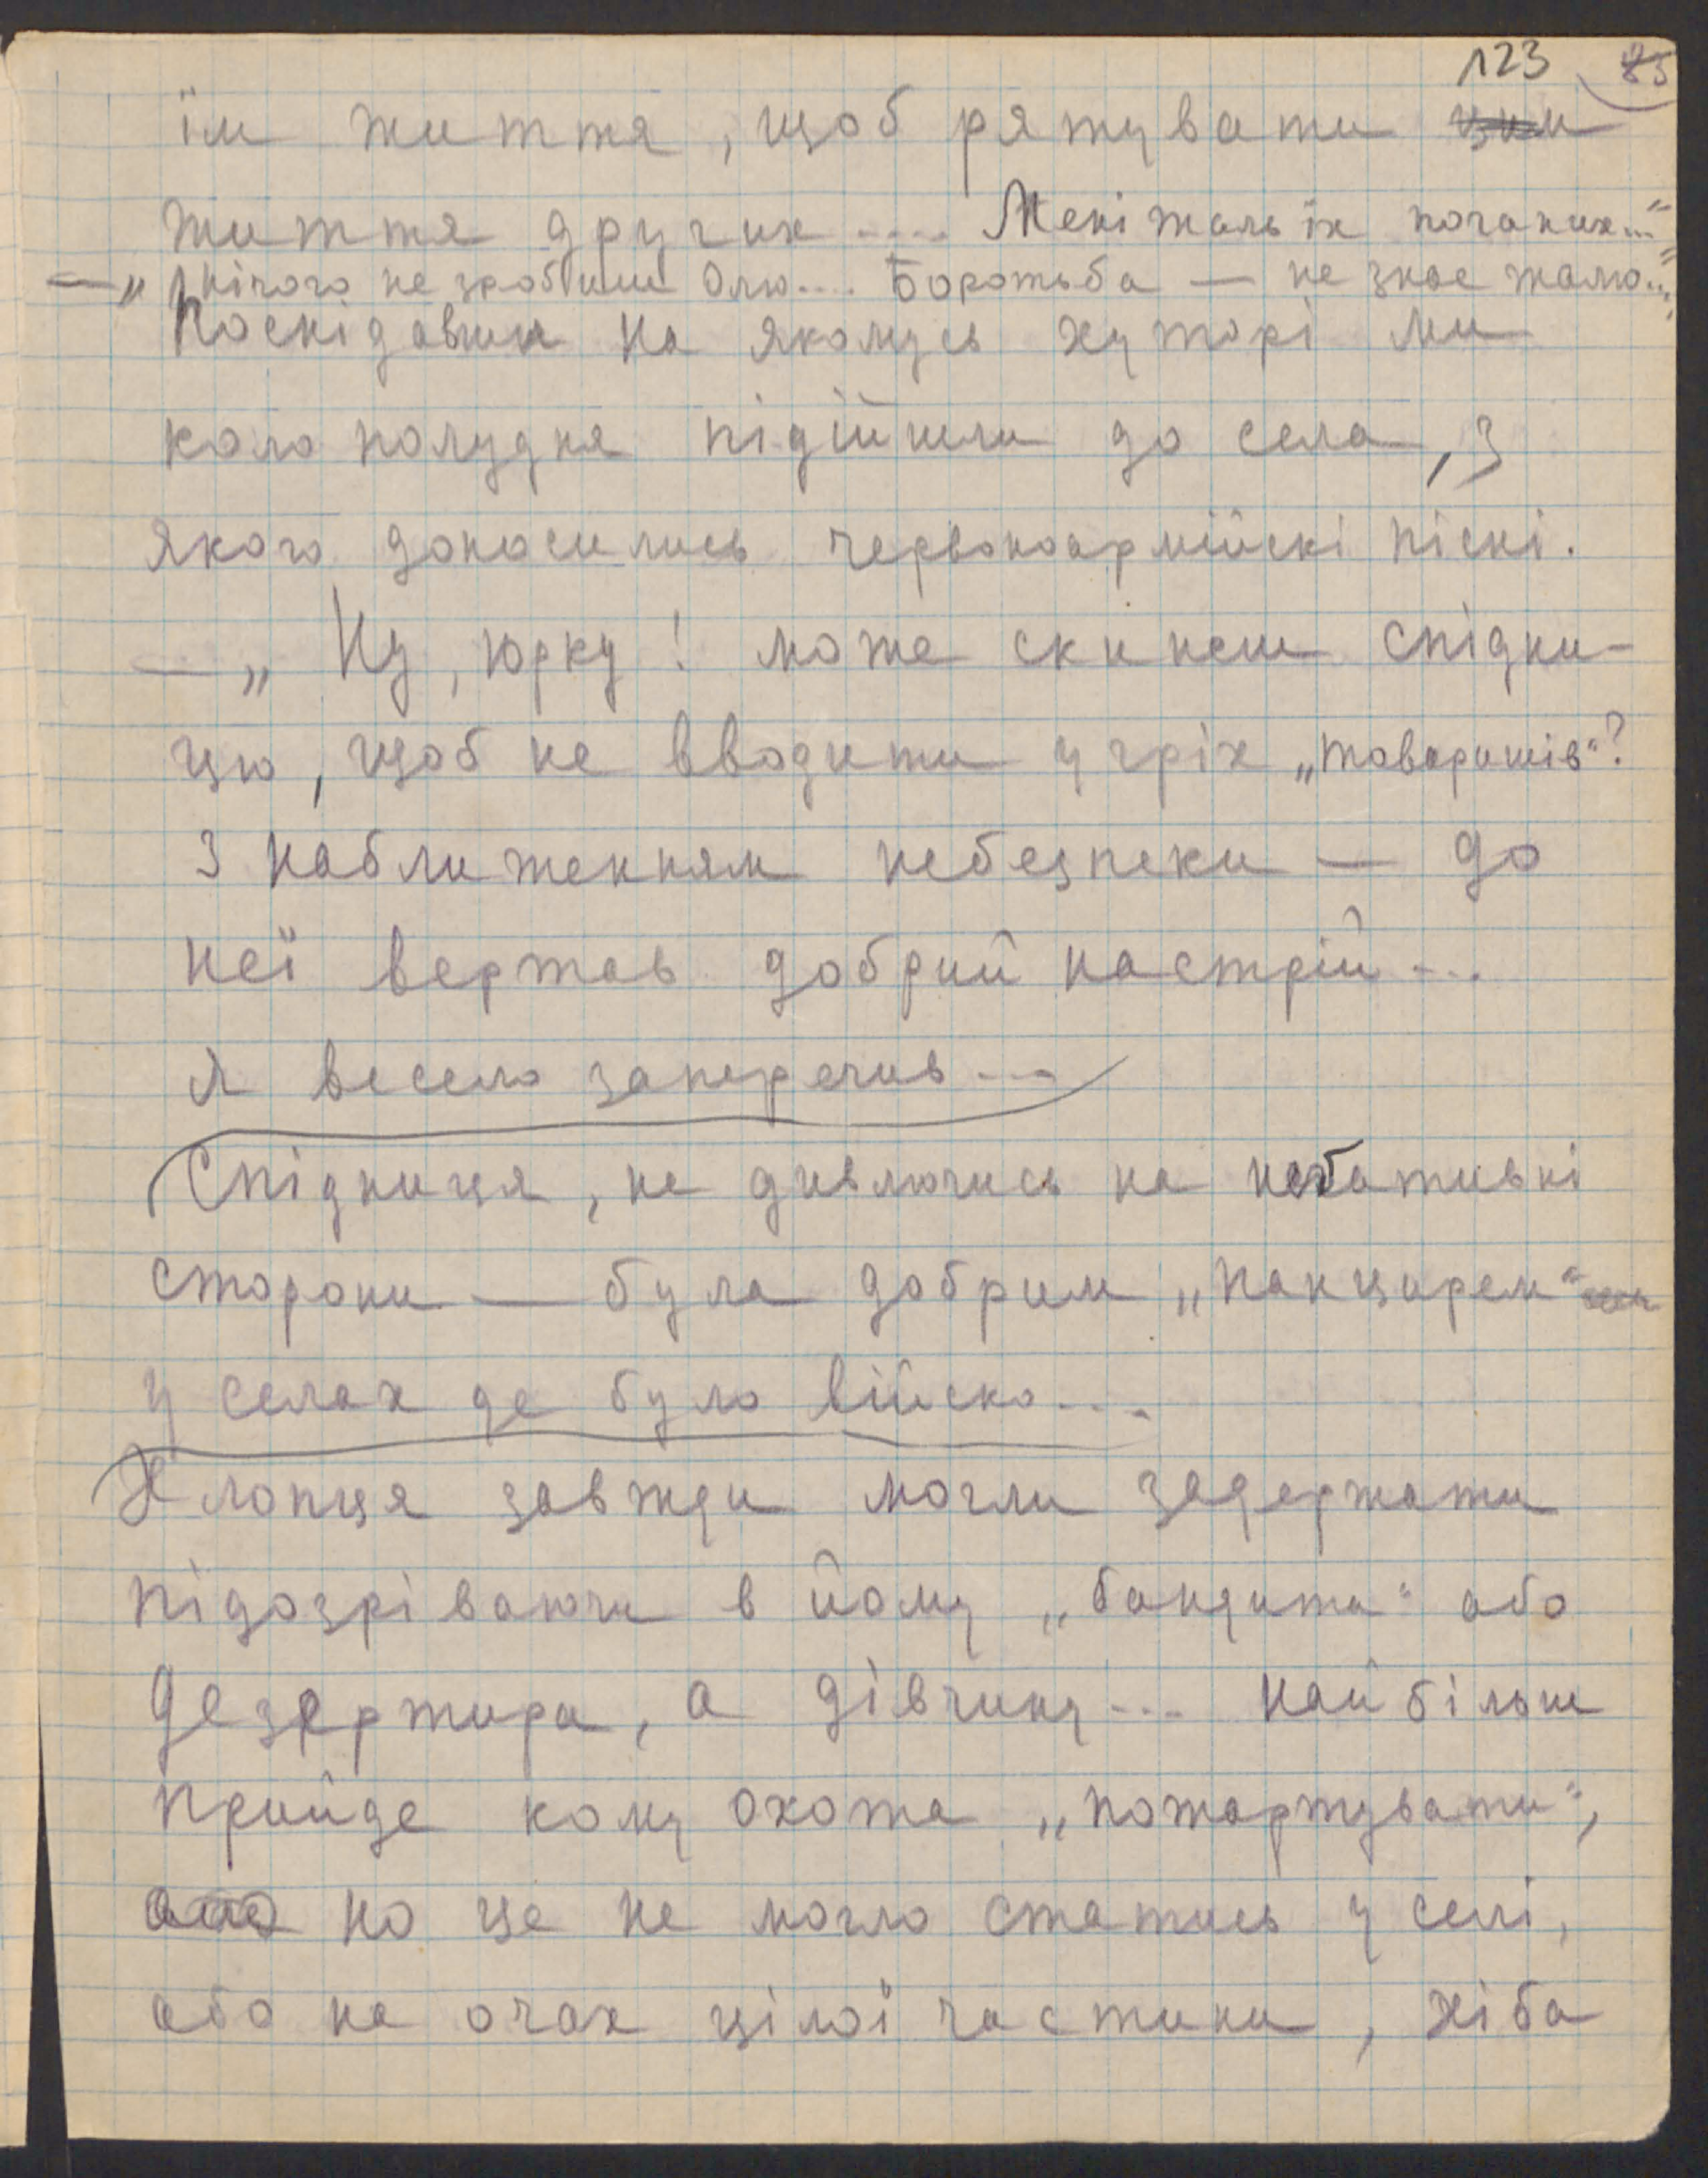 123 85
їм життя, щоб рятувати
життя других.... Мені жаль їх поганих..."
— „нічого не зробиш Олю.... Боротьба — не знає жалю..."
Поснідавши на якомусь хуторі ми
коло полудня підійшли до села, з
якого доносились червоноармійскі пісні.
— „Ну, Юрку! може скинеш спідни-
цю, щоб не вводити у гріх „товаришів"?
З наближенням небезпеки — до
неї вертав добрий настрій...
Я весело заперечив...
Спідниця, не дивлючись на негативні
сторони — була добрим „панцирем"
у селах де було війско...
Хлопця завжди могли задержати
підозріваючи в йому „бандита" або
дезертира, а дівчину... найбільш
прийде кому охота „пожартувати",
но це не могло статись у селі,
або на очах цілої частини, хіба